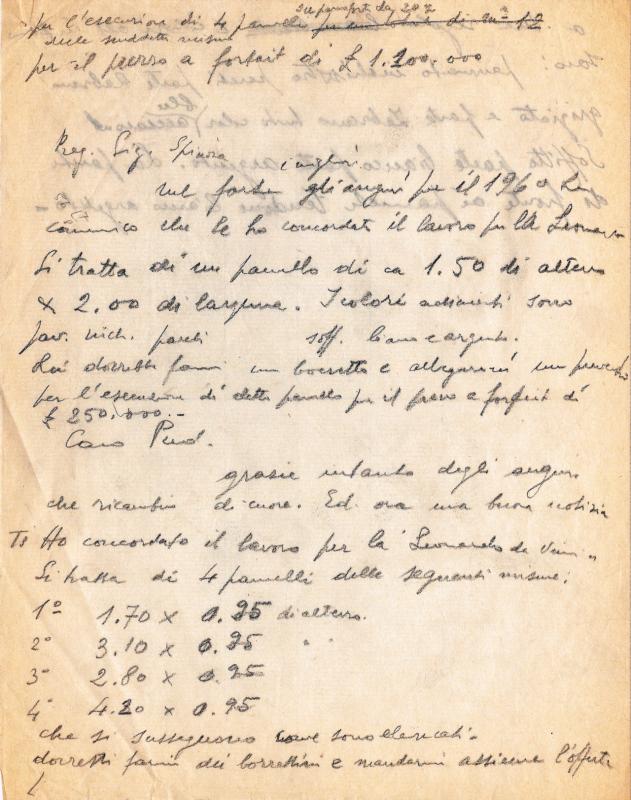 per l'esecuzione di 4 pannelli
delle suddette misure
per il prezzo a forfait di £ 1.200.000
blu
Preg. Sig. Spinosa
i migliori
gli auguri per il 1960
comunico che le ho concordato il lavoro per la Leonardo
Si tratta di un pannello di ca 1.50 di altezza
x 2.00 di larghezza. I colori adiacenti sono
pav. nich. pareti soff. bianc e argento.
Lei dovrebbe farmi un bozzetto e allegarmi un preventivo
per l'esecuzione di detto pannello per il prezzo a forfait di
£ 250.000.-
Caro
grazie intanto degli auguri
che ricambio di cuore. Ed ora una buona notizia
Ti Ho concordato il lavoro per la Leonardo da Vinci.
Si tratta di 4 pannelli delle seguenti misure:
1° 1.70 x 0.95 di altezza.
2° 3.10 x 0.95 " "
3° 2.80 x 0.95
4° 4.20 x 0.95
che si susseguono come sono elencati.
dovresti farmi dei bozzettini e mandarmi assieme l'offerta